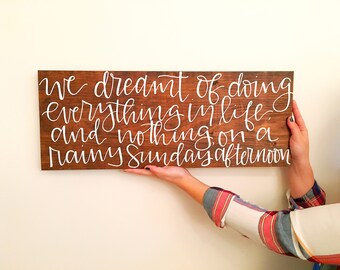 we dreamt of doing
everything in life
and nothing on a
rainy Sunday afternoon